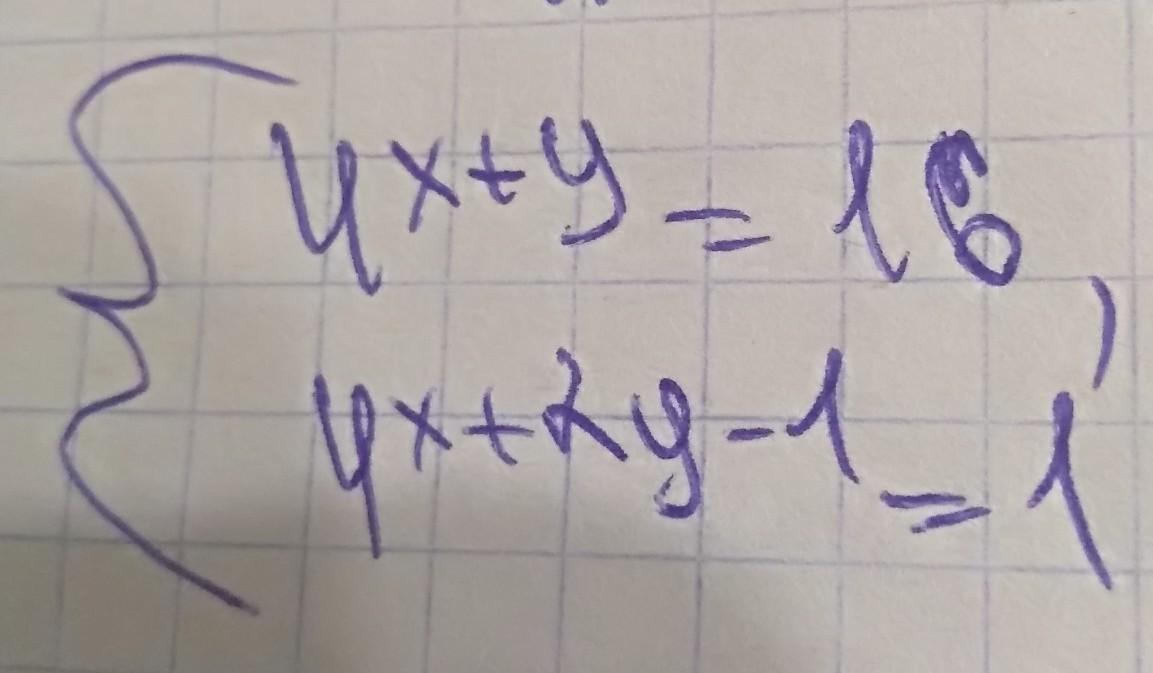 4^{x+y} = 16,
4^{x+2y-1} = 1